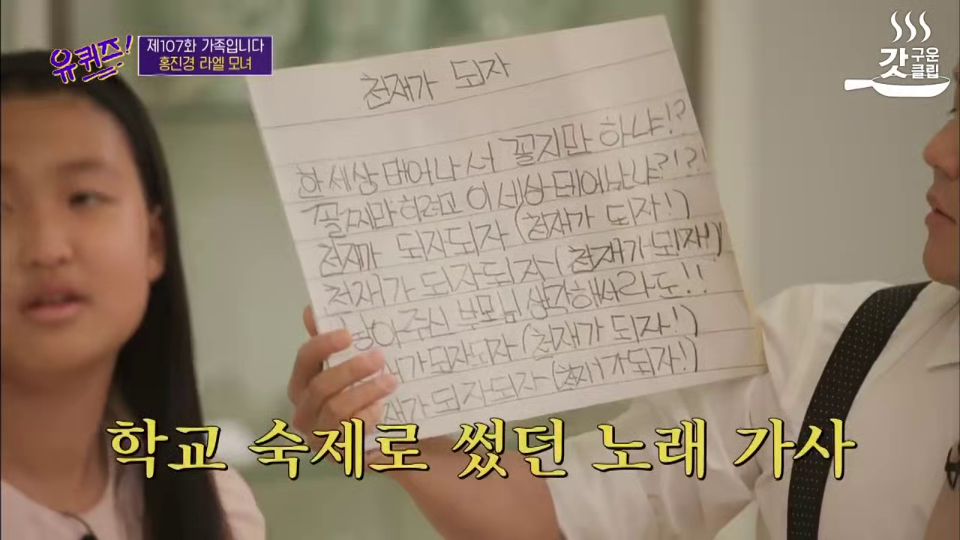 유퀴즈!
제107화 가족입니다
홍진경 라엘 모녀
갓구운클립
천재가 되자
한 세상 태어나서 꼴지만 하냐!?
꼴찌만 하려고 이 세상 태어났냐?!?!
천재가 되자되자 (천재가 되자!)
천재가 되자되자 (천재가 되자!)
낳아주신 부모님 생각해사라도!!
가되자되자 (천재가 되자!)
재가되자되자 (천재가되자!)
학교 숙제로 썼던 노래 가사